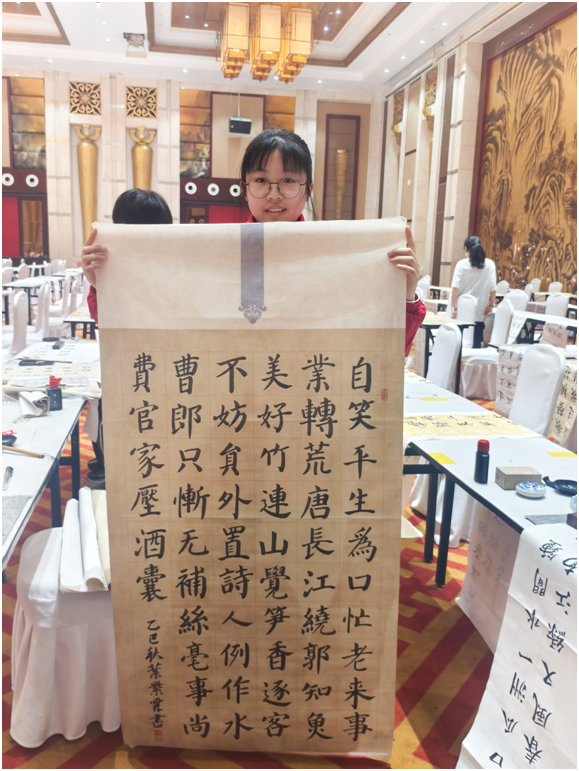 自笑平生爲口忙老来事
業轉荒唐長江繞郭知魚
美好竹連山覺笋香逐客
不妨貟外置詩人例作水
曹郎只慚无補絲毫事尚
費官家壓酒囊
乙巳秋葉紫書